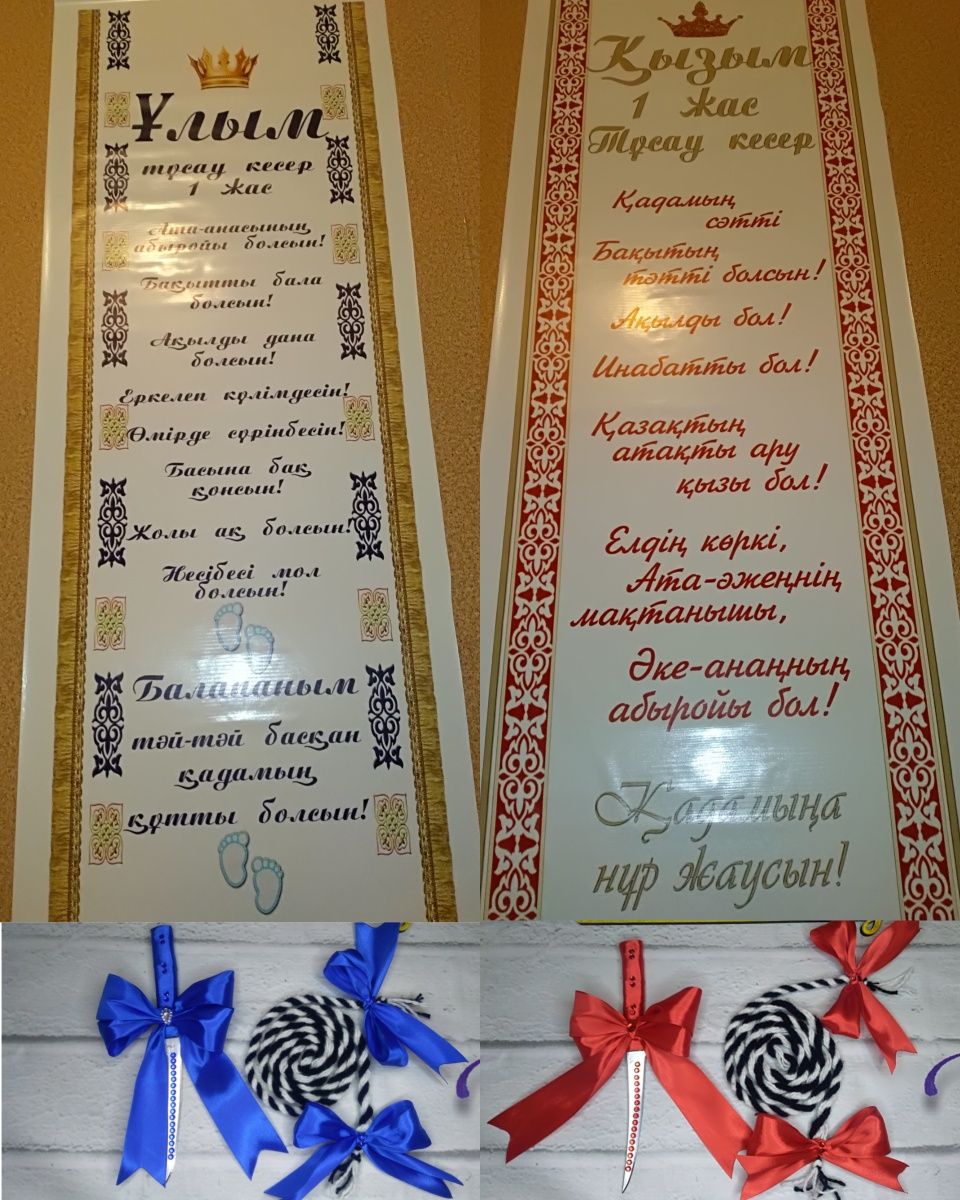 Ұлым
тұсау кесер
1 жас
Ата-анасының
абыройы болсын!
Бақытты бала
болсын!
Ақылды дана
болсын!
Еркелеп күлімдесін!
Өмірде сүрінбесін!
Басына бақ
қонсын!
Жолы ақ болсын!
Несібесі мол
болсын!
Балапаным
тәй-тәй басқан
қадамың
құтты болсын!
Қызым
1 жас
Тұсау кесер
Қадамың
сәтті
Бақытың
тәтті болсын!
Ақылды бол!
Инабатты бол!
Қазақтың
атақты ару
қызы бол!
Елдің көркі,
Ата-әжеңнің
мақтанышы,
Әке-анаңның
абыройы бол!
Қадамыңа
нұр жаусын!